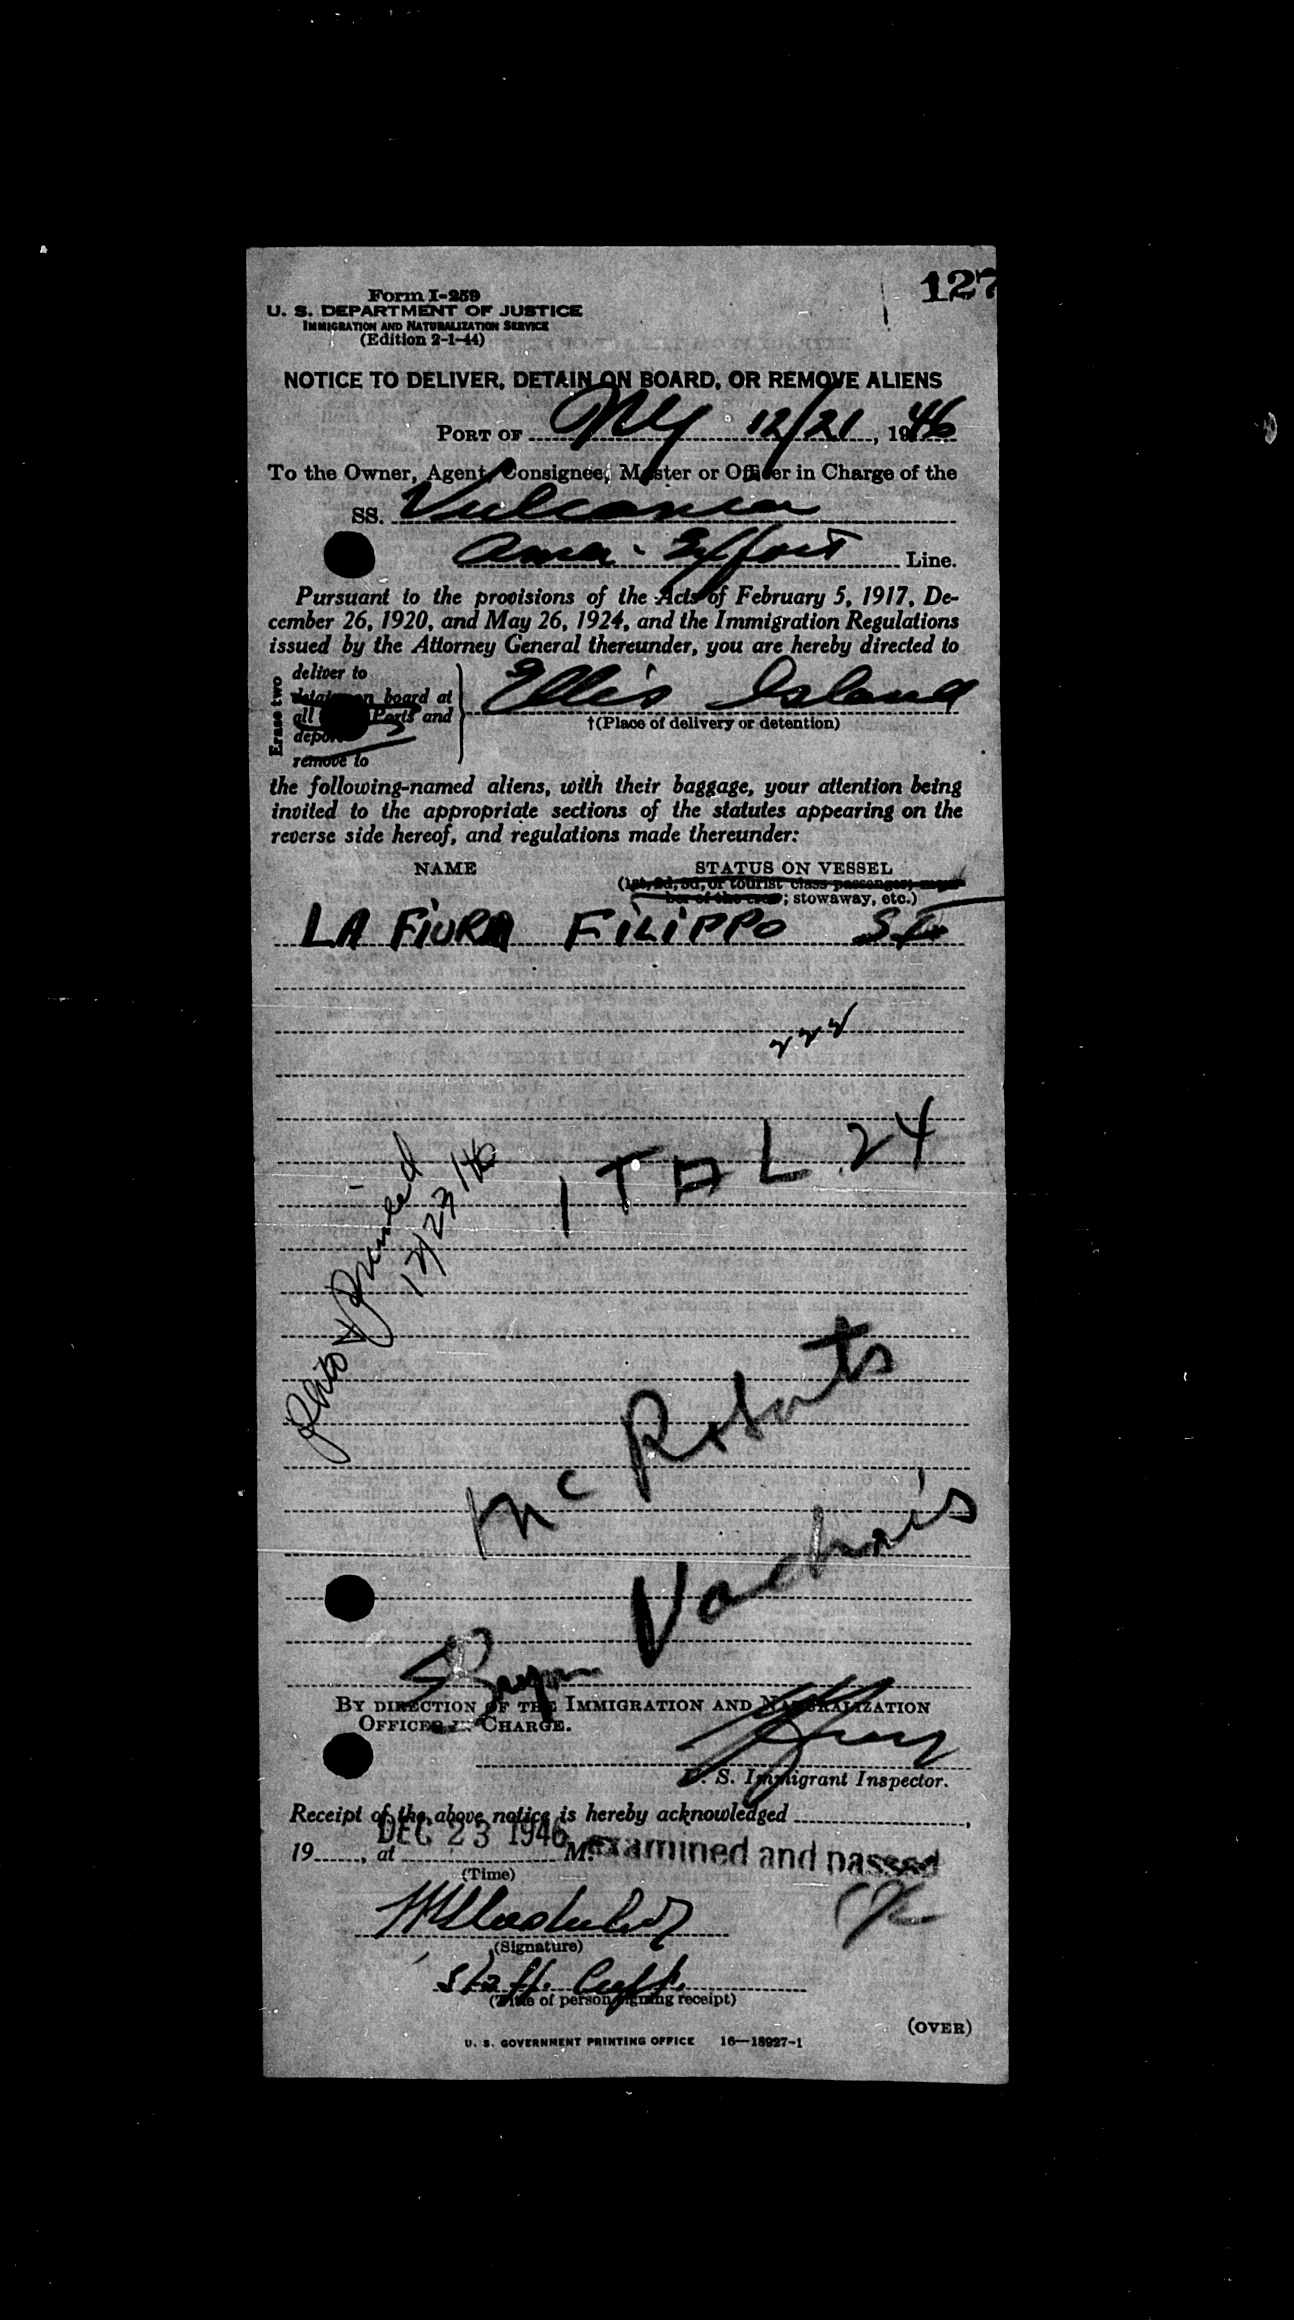 127
Form I-259
U. S. DEPARTMENT OF JUSTICE
IMMIGRATION AND NATURALIZATION SERVICE
(Edition 2-1-44)
NOTICE TO DELIVER, DETAIN ON BOARD, OR REMOVE ALIENS
PORT OF NY 12/21, 1946
To the Owner, Agent, Consignee, Master or Officer in Charge of the
SS. Vulcania
Amer. Export Line.
Pursuant to the provisions of the Acts of February 5, 1917, De-
cember 26, 1920, and May 26, 1924, and the Immigration Regulations
issued by the Attorney General thereunder, you are hereby directed to
Erase two
deliver to
detain on board at
all Ports and
deport
remove to
Ellis Island
†(Place of delivery or detention)
the following-named aliens, with their baggage, your attention being
invited to the appropriate sections of the statutes appearing on the
reverse side hereof, and regulations made thereunder:
NAME STATUS ON VESSEL
(1st, 2d, 3d, or tourist class passenger; mem-
ber of the crew; stowaway, etc.)
LA FIURA FILIPPO SI
ITAL 24
Photo & Printed
12/23/46
McRoberts
BY DIRECTION OF THE IMMIGRATION AND NATURALIZATION
OFFICER IN CHARGE.
U. S. Immigrant Inspector.
Receipt of the above notice is hereby acknowledged ,
DEC 23 1946
19 , at M. examined and passed
(Time)
(Signature)
Staff Capt.
(Title of person signing receipt)
(OVER)
U. S. GOVERNMENT PRINTING OFFICE 16—18927-1